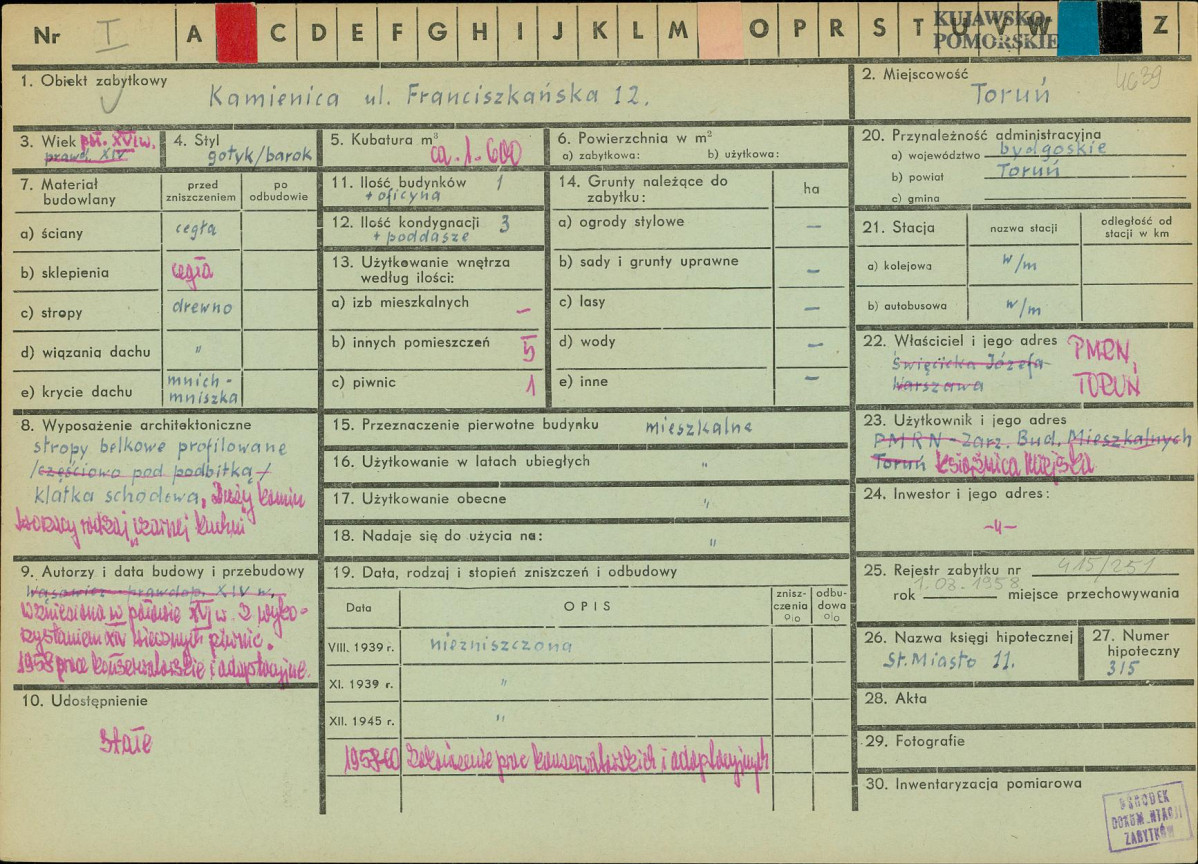 Nr I A C D E F G H I J K L M O P R S T U V W Z
KUJAWSKO-
POMORSKIE
1. Obiekt zabytkowy
Kamienica ul. Franciszkańska 12.
2. Miejscowość
4639
Toruń
3. Wiek poł. XVI w.
prawd. XIV
4. Styl
gotyk/barok
5. Kubatura m³
ca. 1.600
6. Powierzchnia w m²
a) zabytkowa: b) użytkowa:
7. Materiał
budowlany
przed
zniszczeniem
po
odbudowie
a) ściany cegła
b) sklepienia cegła
c) stropy drewno
d) wiązania dachu "
e) krycie dachu mnich-
mniszka
8. Wyposażenie architektoniczne
stropy belkowe profilowane
/częściowo pod podbitką/
klatka schodowa, Duży komin
tworzący rodzaj "czarnej kuchni
9. Autorzy i data budowy i przebudowy
prawdop. XIV w.
wzniesiona w połowie XVI w. z wyko-
rzystaniem XIV wiecznych piwnic.
1958 prace konserwatorskie i adaptacyjne.
10. Udostępnienie
stałe
11. Ilość budynków 1
+ oficyna
12. Ilość kondygnacji 3
+ poddasze
13. Użytkowanie wnętrza
według ilości:
a) izb mieszkalnych –
b) innych pomieszczeń 5
c) piwnic 1
14. Grunty należące do
zabytku:
ha
a) ogrody stylowe –
b) sady i grunty uprawne –
c) lasy –
d) wody –
e) inne –
15. Przeznaczenie pierwotne budynku mieszkalne
16. Użytkowanie w latach ubiegłych "
17. Użytkowanie obecne "
18. Nadaje się do użycia na: "
19. Data, rodzaj i stopień zniszczeń i odbudowy
Data
OPIS
znisz-
czenia
%
odbu-
dowa
%
VIII. 1939 r. niezniszczona
XI. 1939 r. "
XII. 1945 r. "
1958-60 Zakończenie prac konserwatorskich i adaptacyjnych
20. Przynależność administracyjna
a) województwo bydgoskie
b) powiat Toruń
c) gmina
21. Stacja
nazwa stacji
odległość od
stacji w km
a) kolejowa w/m
b) autobusowa w/m
22. Właściciel i jego adres
Święcicka Józefa
Warszawa
PMRN,
TORUŃ
23. Użytkownik i jego adres
PMRN - Zarz. Bud. Mieszkalnych
Toruń Książnica Miejska
24. Inwestor i jego adres:
-"-
25. Rejestr zabytku nr 415/251
rok 1.03.1958 miejsce przechowywania
26. Nazwa księgi hipotecznej
St. Miasto 11.
27. Numer
hipoteczny
315
28. Akta
29. Fotografie
30. Inwentaryzacja pomiarowa
OŚRODEK
DOKUMENTACJI
ZABYTKÓW